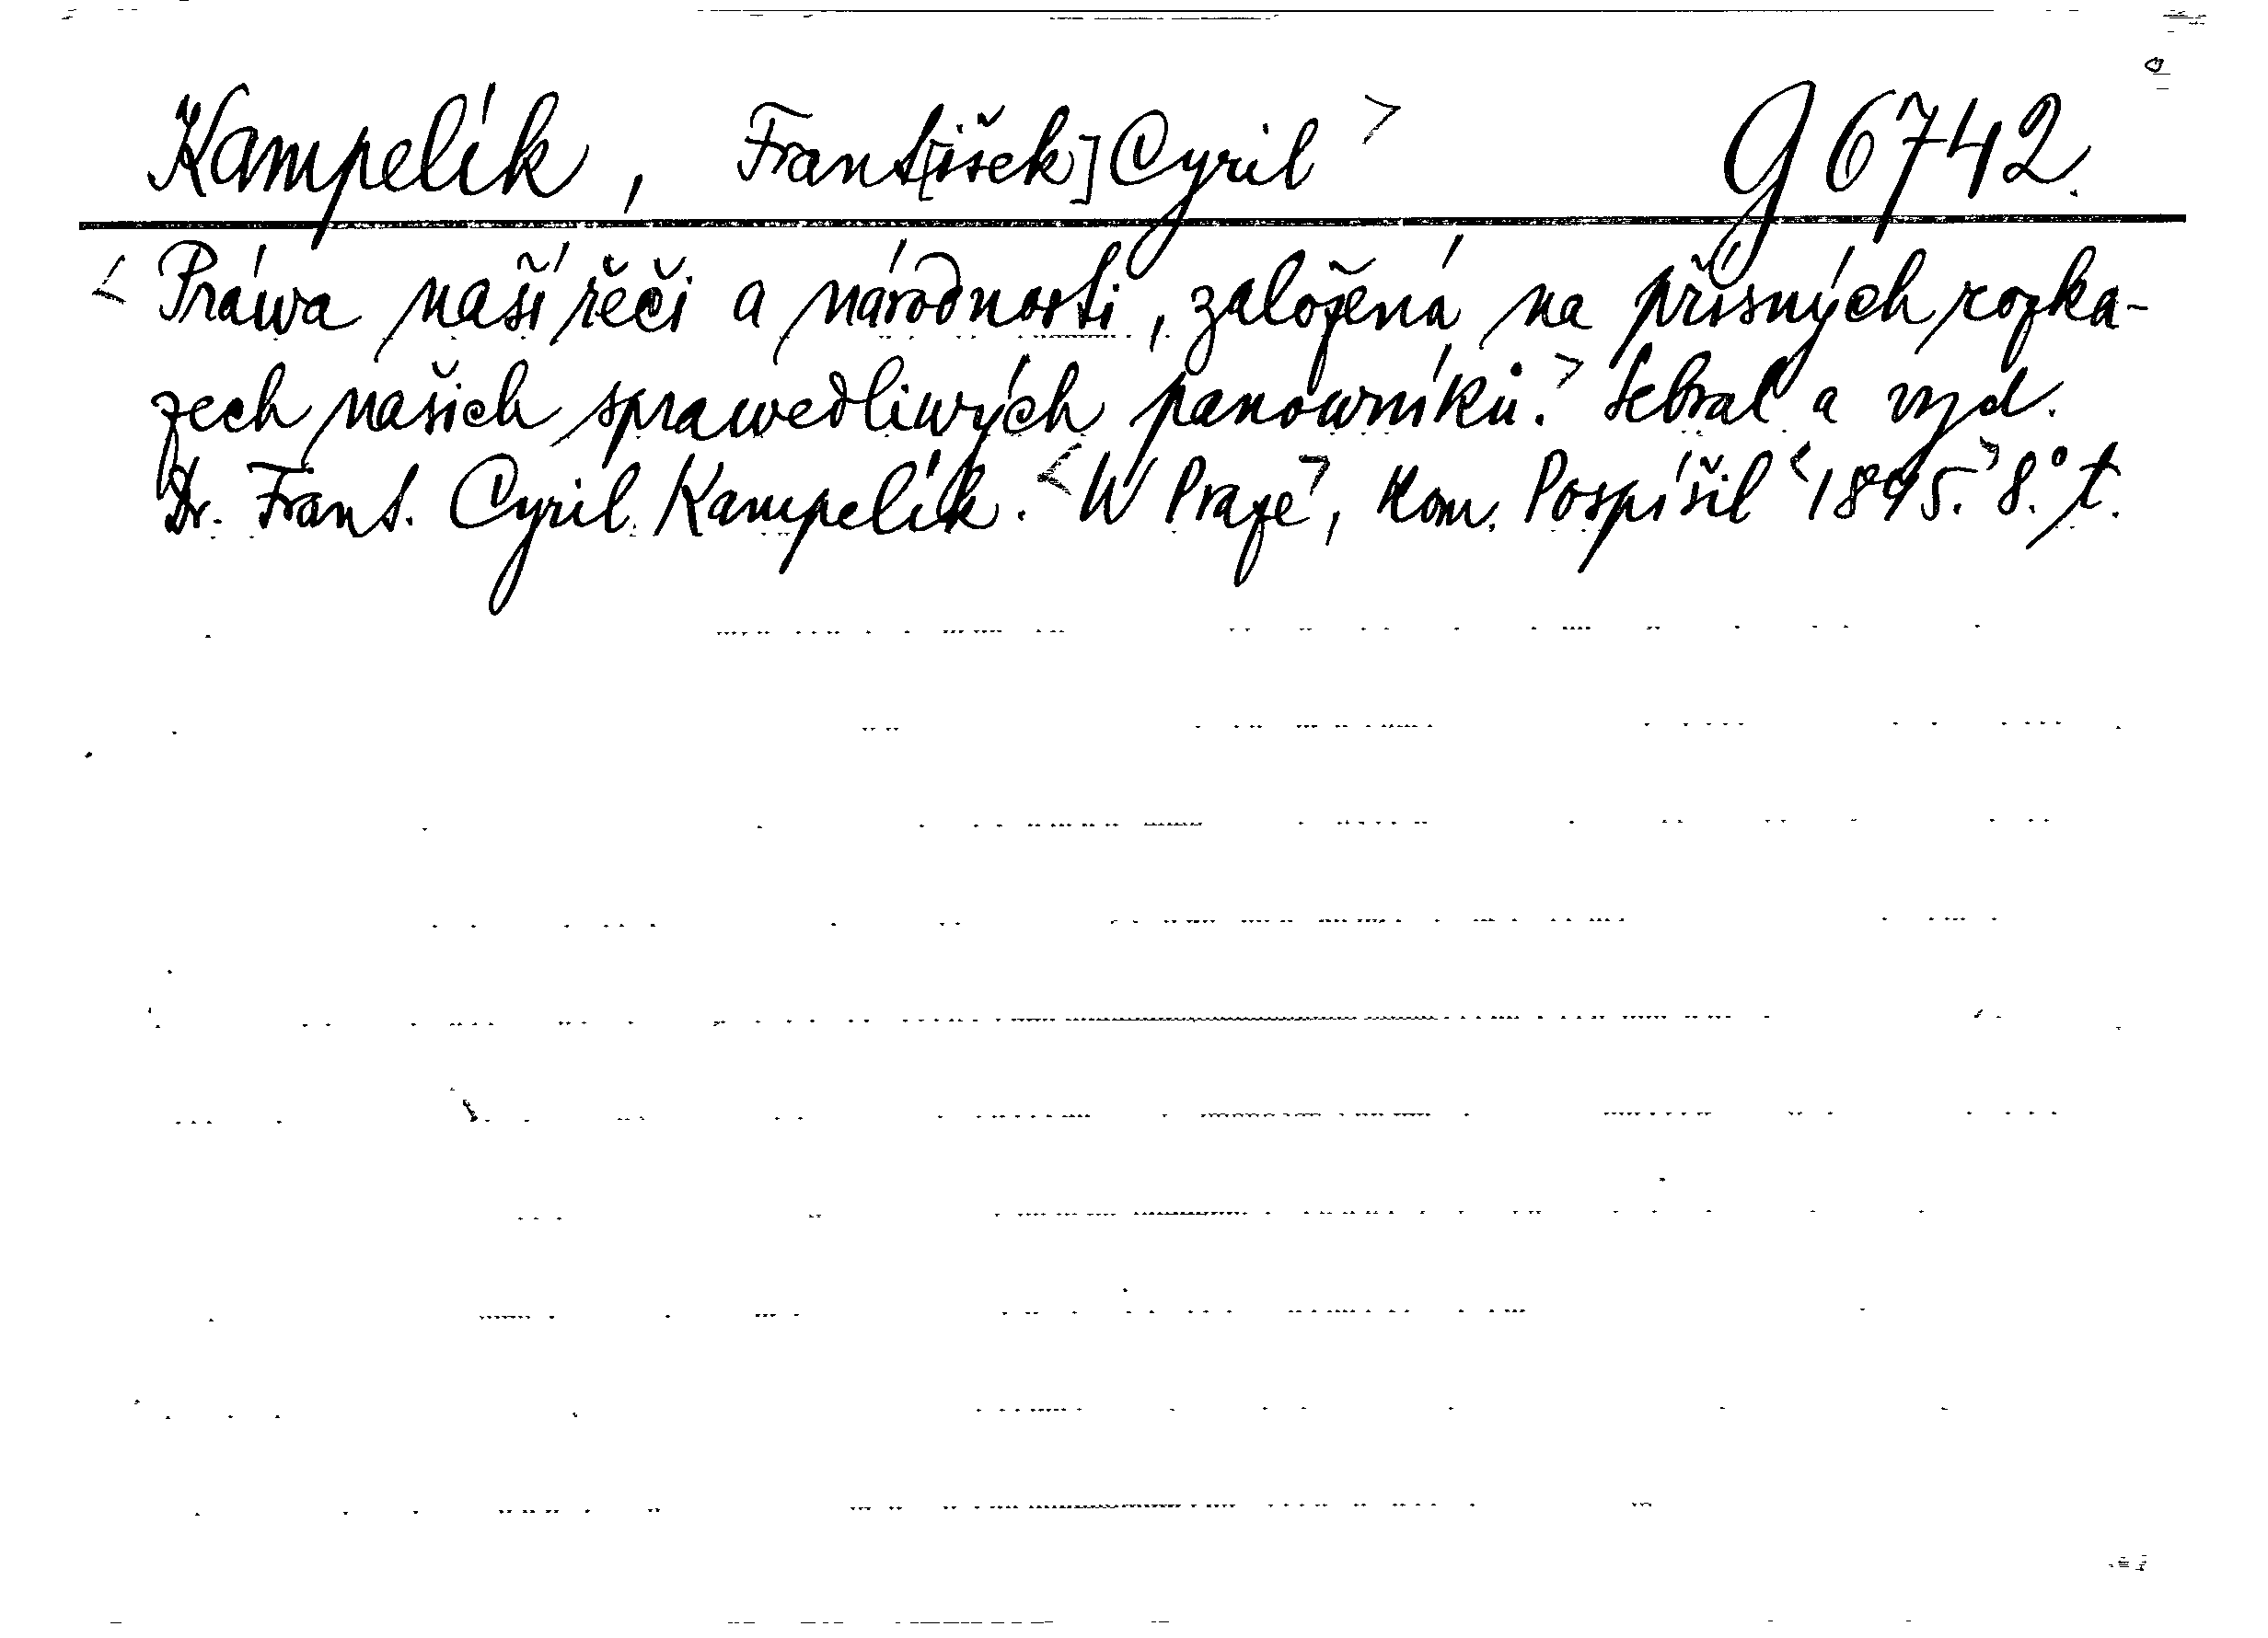 Kampelík, Frant[išek] Cyril > G 6742.
< Práwa naší řeči a národnosti, založená na přísných rozka-
zech našich sprawedliwých panowníků. > Sebral a vyd.
Dr. Frant. Cyril Kampelík. < W Praze >, Kom. Pospíšil < 1845. > 8.° t.